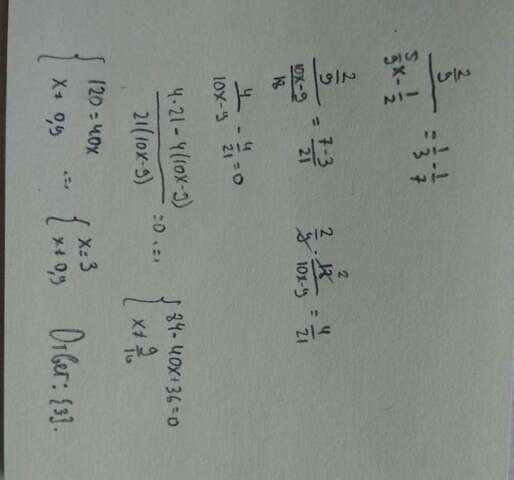 (2/9)/(5/9 x - 1/2) = 1/3 - 1/7
(2/9)/((10x-9)/18) = (7-3)/21
2/9 · 18²/(10x-9) = 4/21
4/(10x-9) - 4/21 = 0
(4·21 - 4(10x-9))/(21(10x-9)) = 0 <=> { 84 - 40x + 36 = 0
x ≠ 9/10
{ 120 = 40x
x ≠ 0,9 <=> { x = 3
x ≠ 0,9 Ответ: {3}.